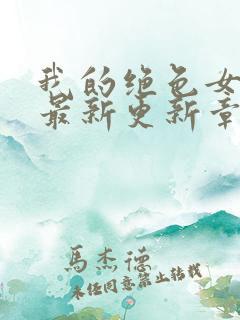 我的绝色女
最新更新章
馬杰德
未经同意禁止转载